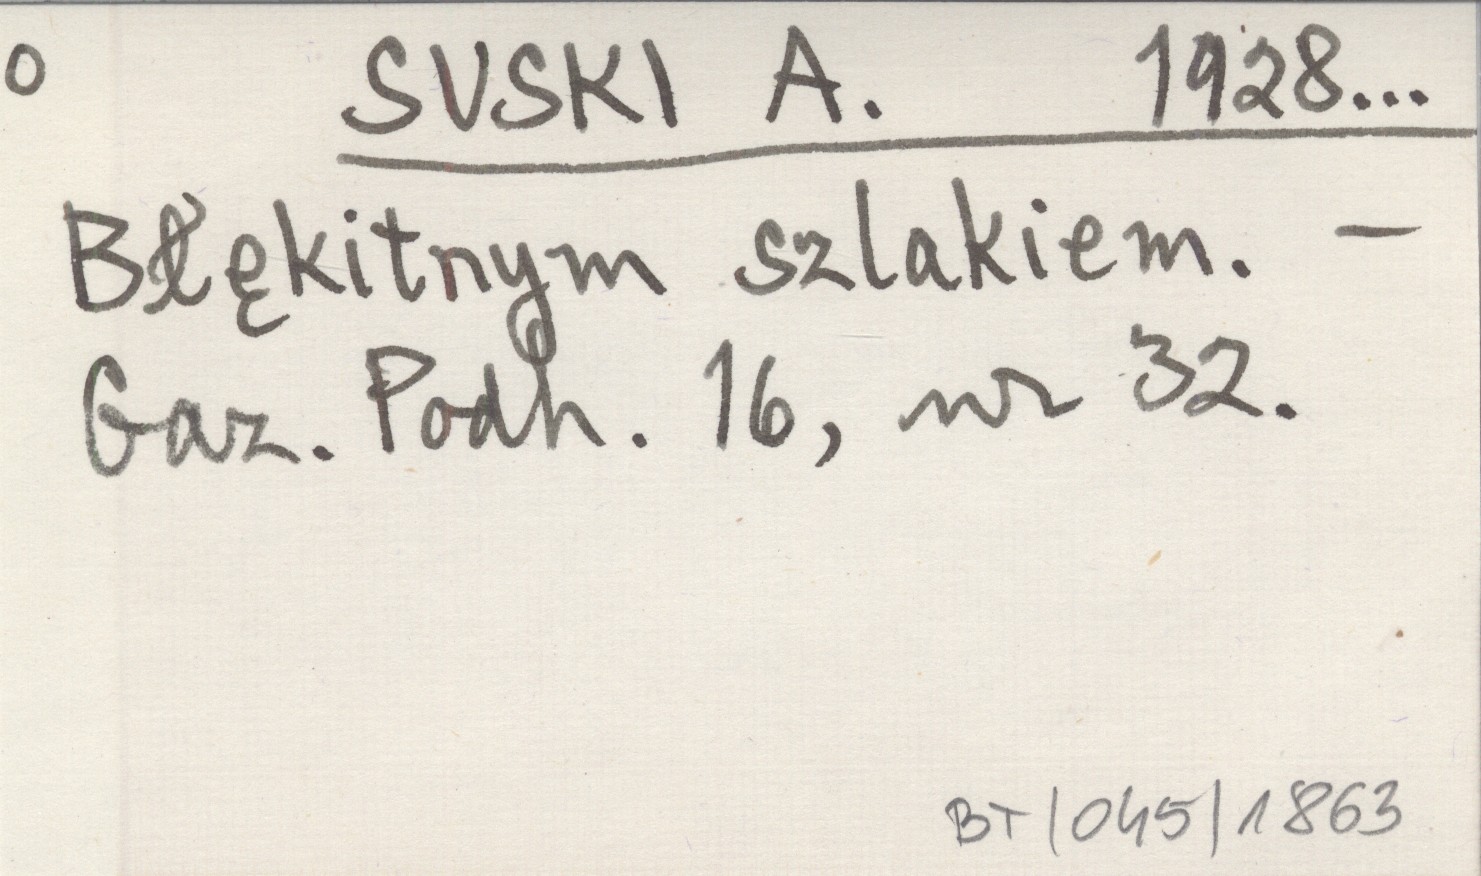 o SUSKI A. 1928...
Błękitnym szlakiem. –
Gaz. Podh. 16, nr 32.
BT/045/1863